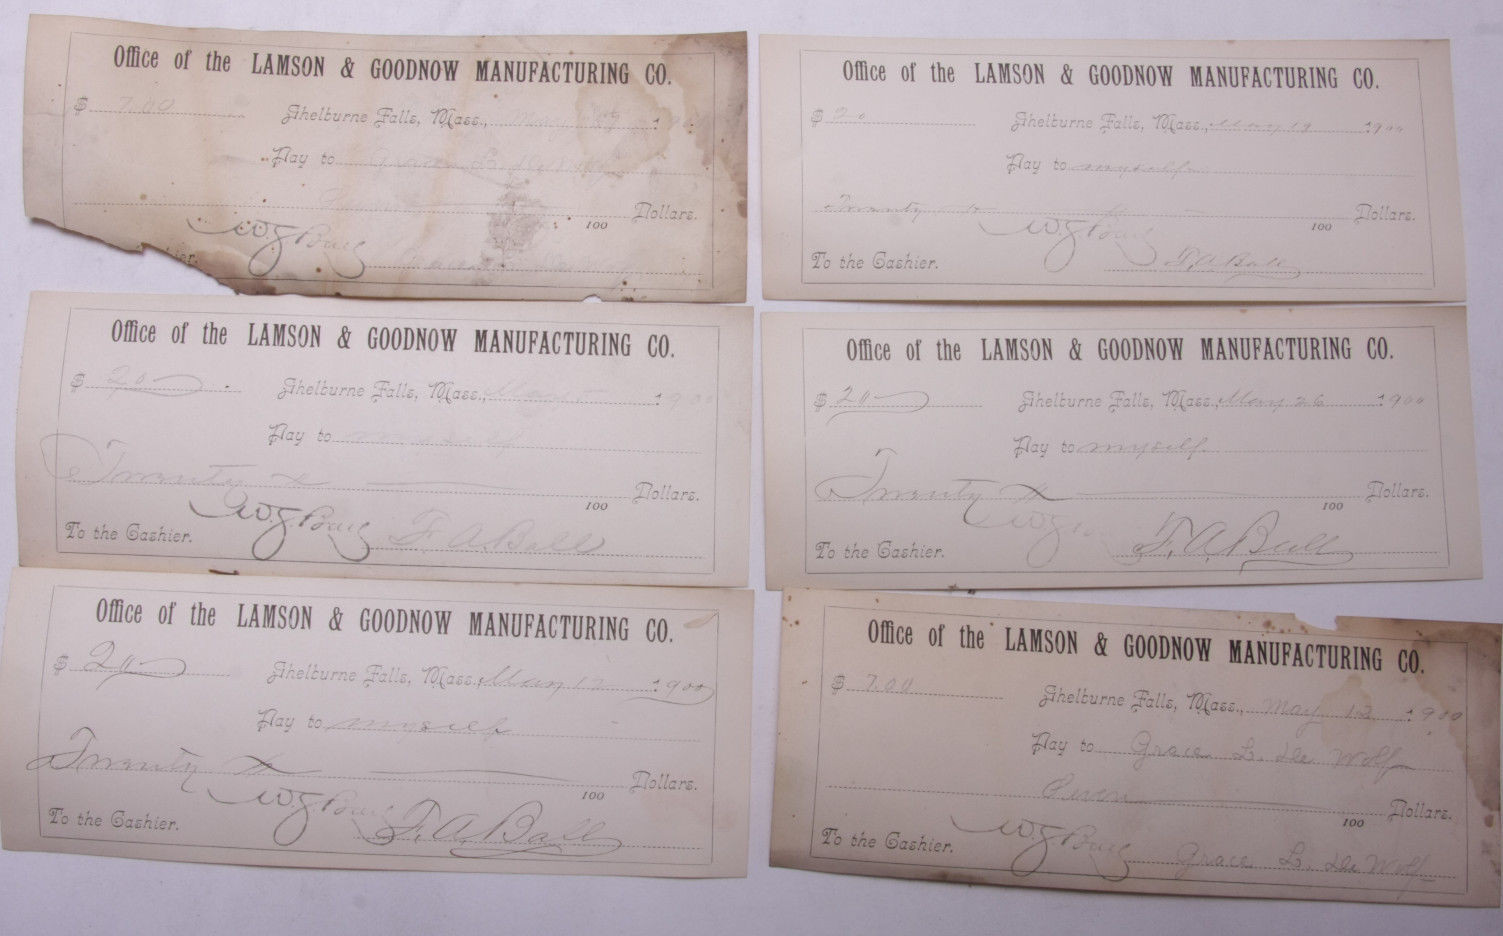 Office of the LAMSON & GOODNOW MANUFACTURING CO.
$ 7.00 Shelburne Falls, Mass., May 19 190
Pay to Grace L. De Wolf
Seven
100 Dollars.
W.G.
Grace
Office of the LAMSON & GOODNOW MANUFACTURING CO.
$ 20 Shelburne Falls, Mass., May 19 1900
Pay to myself
Twenty
100 Dollars.
W.G.
To the Cashier. F. A. Ball
Office of the LAMSON & GOODNOW MANUFACTURING CO.
$ 20 Shelburne Falls, Mass., May 5 1900
Pay to myself
Twenty
100 Dollars.
W.G.
To the Cashier. F. A. Ball
Office of the LAMSON & GOODNOW MANUFACTURING CO.
$ 20 Shelburne Falls, Mass., May 26 1900
Pay to myself
Twenty
100 Dollars.
W.G.
To the Cashier. F. A. Ball
Office of the LAMSON & GOODNOW MANUFACTURING CO.
$ 20 Shelburne Falls, Mass., May 12 1900
Pay to myself
Twenty
100 Dollars.
W.G.
To the Cashier. F. A. Ball
Office of the LAMSON & GOODNOW MANUFACTURING CO.
$ 7.00 Shelburne Falls, Mass., May 12 1900
Pay to Grace L. De Wolf
Seven
100 Dollars.
W.G.
To the Cashier. Grace L. De Wolf